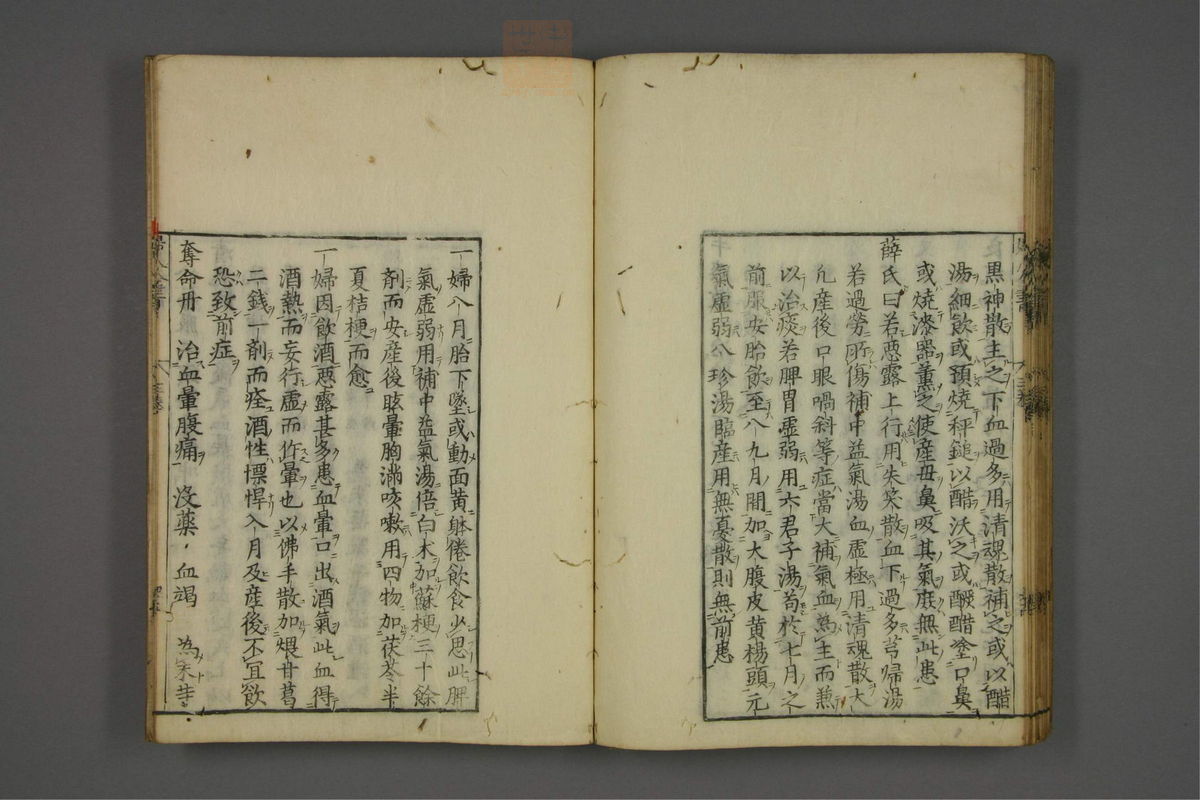 黒神散主之下血過多用清魂散補之或以醋
湯細飲或預燒秤鎚以醋沃之或釅醋塗口鼻
或燒漆器薰之使產母鼻吸其氣庶無此患
薛氏曰若惡露上行用失笑散血下過多芎歸湯
若過勞所傷補中益氣湯血虛極用清魂散大
凢產後口眼喎斜等症當大補氣血為主而兼
以治痰若脾胃虛弱用六君子湯苟於七月之
前服安胎飲至八九月間加大腹皮黄楊頭元
氣虛弱八珍湯臨產用無憂散則無前患
一婦八月胎下墜或動面黄躰倦飲食少思此脾
氣虛弱用補中益氣湯倍白术加蘇梗三十餘
剤而安產後眩暈胸滿咳嗽用四物加茯苓半
夏桔梗而愈
一婦因飲酒惡露甚多患血暈口出酒氣此血得
酒熱而妄行虛而作暈也以佛手散加煨甘葛
二錢一剤而痊酒性慓悍入月及產後不宜飲
恐致前症
奪命丹 治血暈腹痛 没藥 血竭 為末䓁